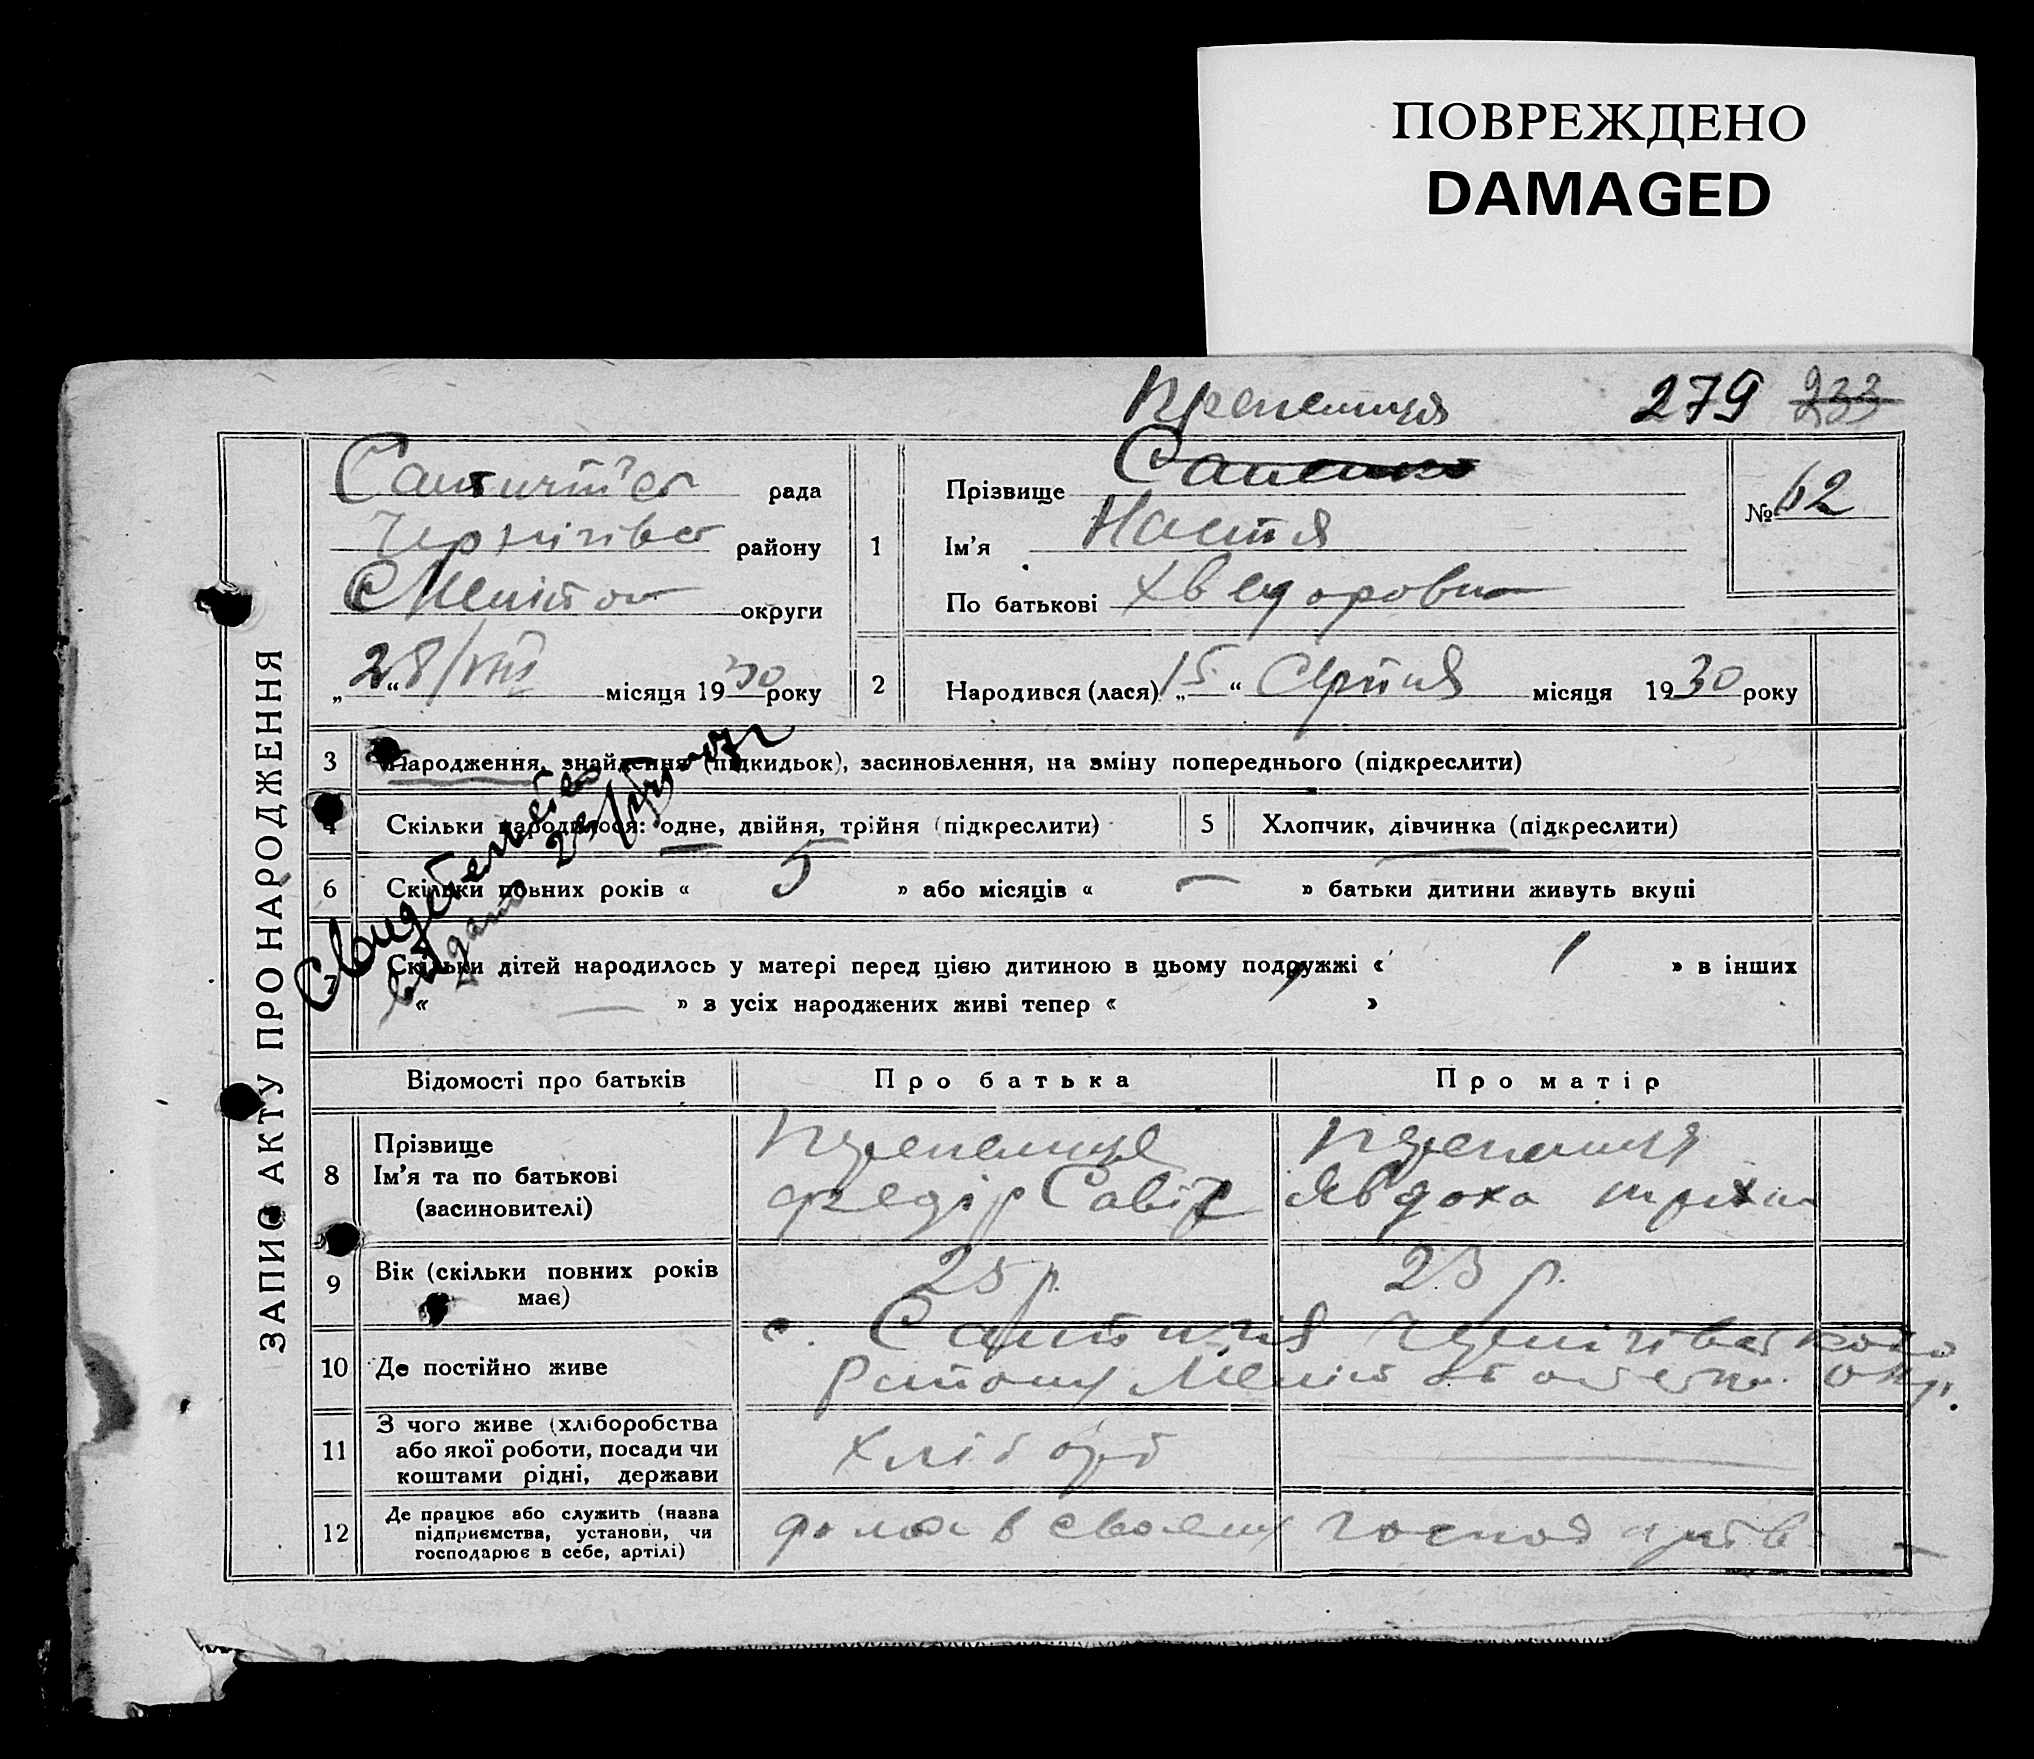 ПОВРЕЖДЕНО
DAMAGED
279 233
рада
Чернігівсь району
округи
„28/VIII“ місяця 1930 року
1
Прізвище
Ім’я Настя
По батькові Хведоровна
№ 62
2
Народився (лася) „15“ Серпня місяця 1930 року
ЗАПИС АКТУ ПРО НАРОДЖЕННЯ
3 Народження, знайдення (підкидьок), засиновлення, на зміну попереднього (підкреслити)
4 Скільки народилося: одне, двійня, трійня (підкреслити)
5 Хлопчик, дівчинка (підкреслити)
6 Скільки повних років « 5 » або місяців « — » батьки дитини живуть вкупі
7 Скільки дітей народилось у матері перед цією дитиною в цьому подружжі « 1 » в інших
« — » з усіх народжених живі тепер « »
Свидетельство
видано
Відомості про батьків
Про батька
Про матір
8 Прізвище
Ім’я та по батькові
(засиновителі)
Перепелиця
Федір Савів
Перепелиця
Явдоха
9 Вік (скільки повних років
має)
25 р.
23 р.
10 Де постійно живе
с. Черніговського
Району
11 З чого живе (хліборобства
або якої роботи, посади чи
коштами рідні, держави
Хлібороб
12 Де працює або служить (назва
підприємства, установи, чи
господарює в себе, артілі)
в своему господарстві